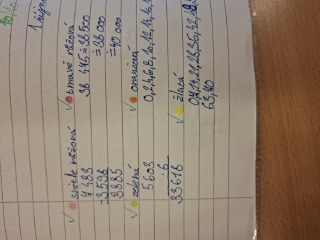 1. říjn
✓ světle růžová
7 483
-3598
3885
✓ tmavě růžová
38 476 ≐ 38 500
≐ 38 000
≐ 40 000
✓ zelená
5603
·6
33618
✓ oranžová
0,2,4,6,8,10,12,14,16,
✓ žlutá
0,7,14,21,28,35,42,
63,70